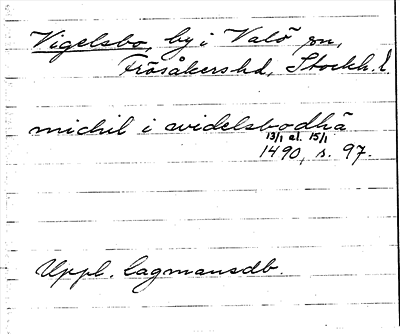 Vigelsbo, by i Valö sn,
Frösåkers hd, Stockh. l.
michil i widelsbodha
13/1 el. 15/1
1490, s. 97.
Uppl. lagmansdb.